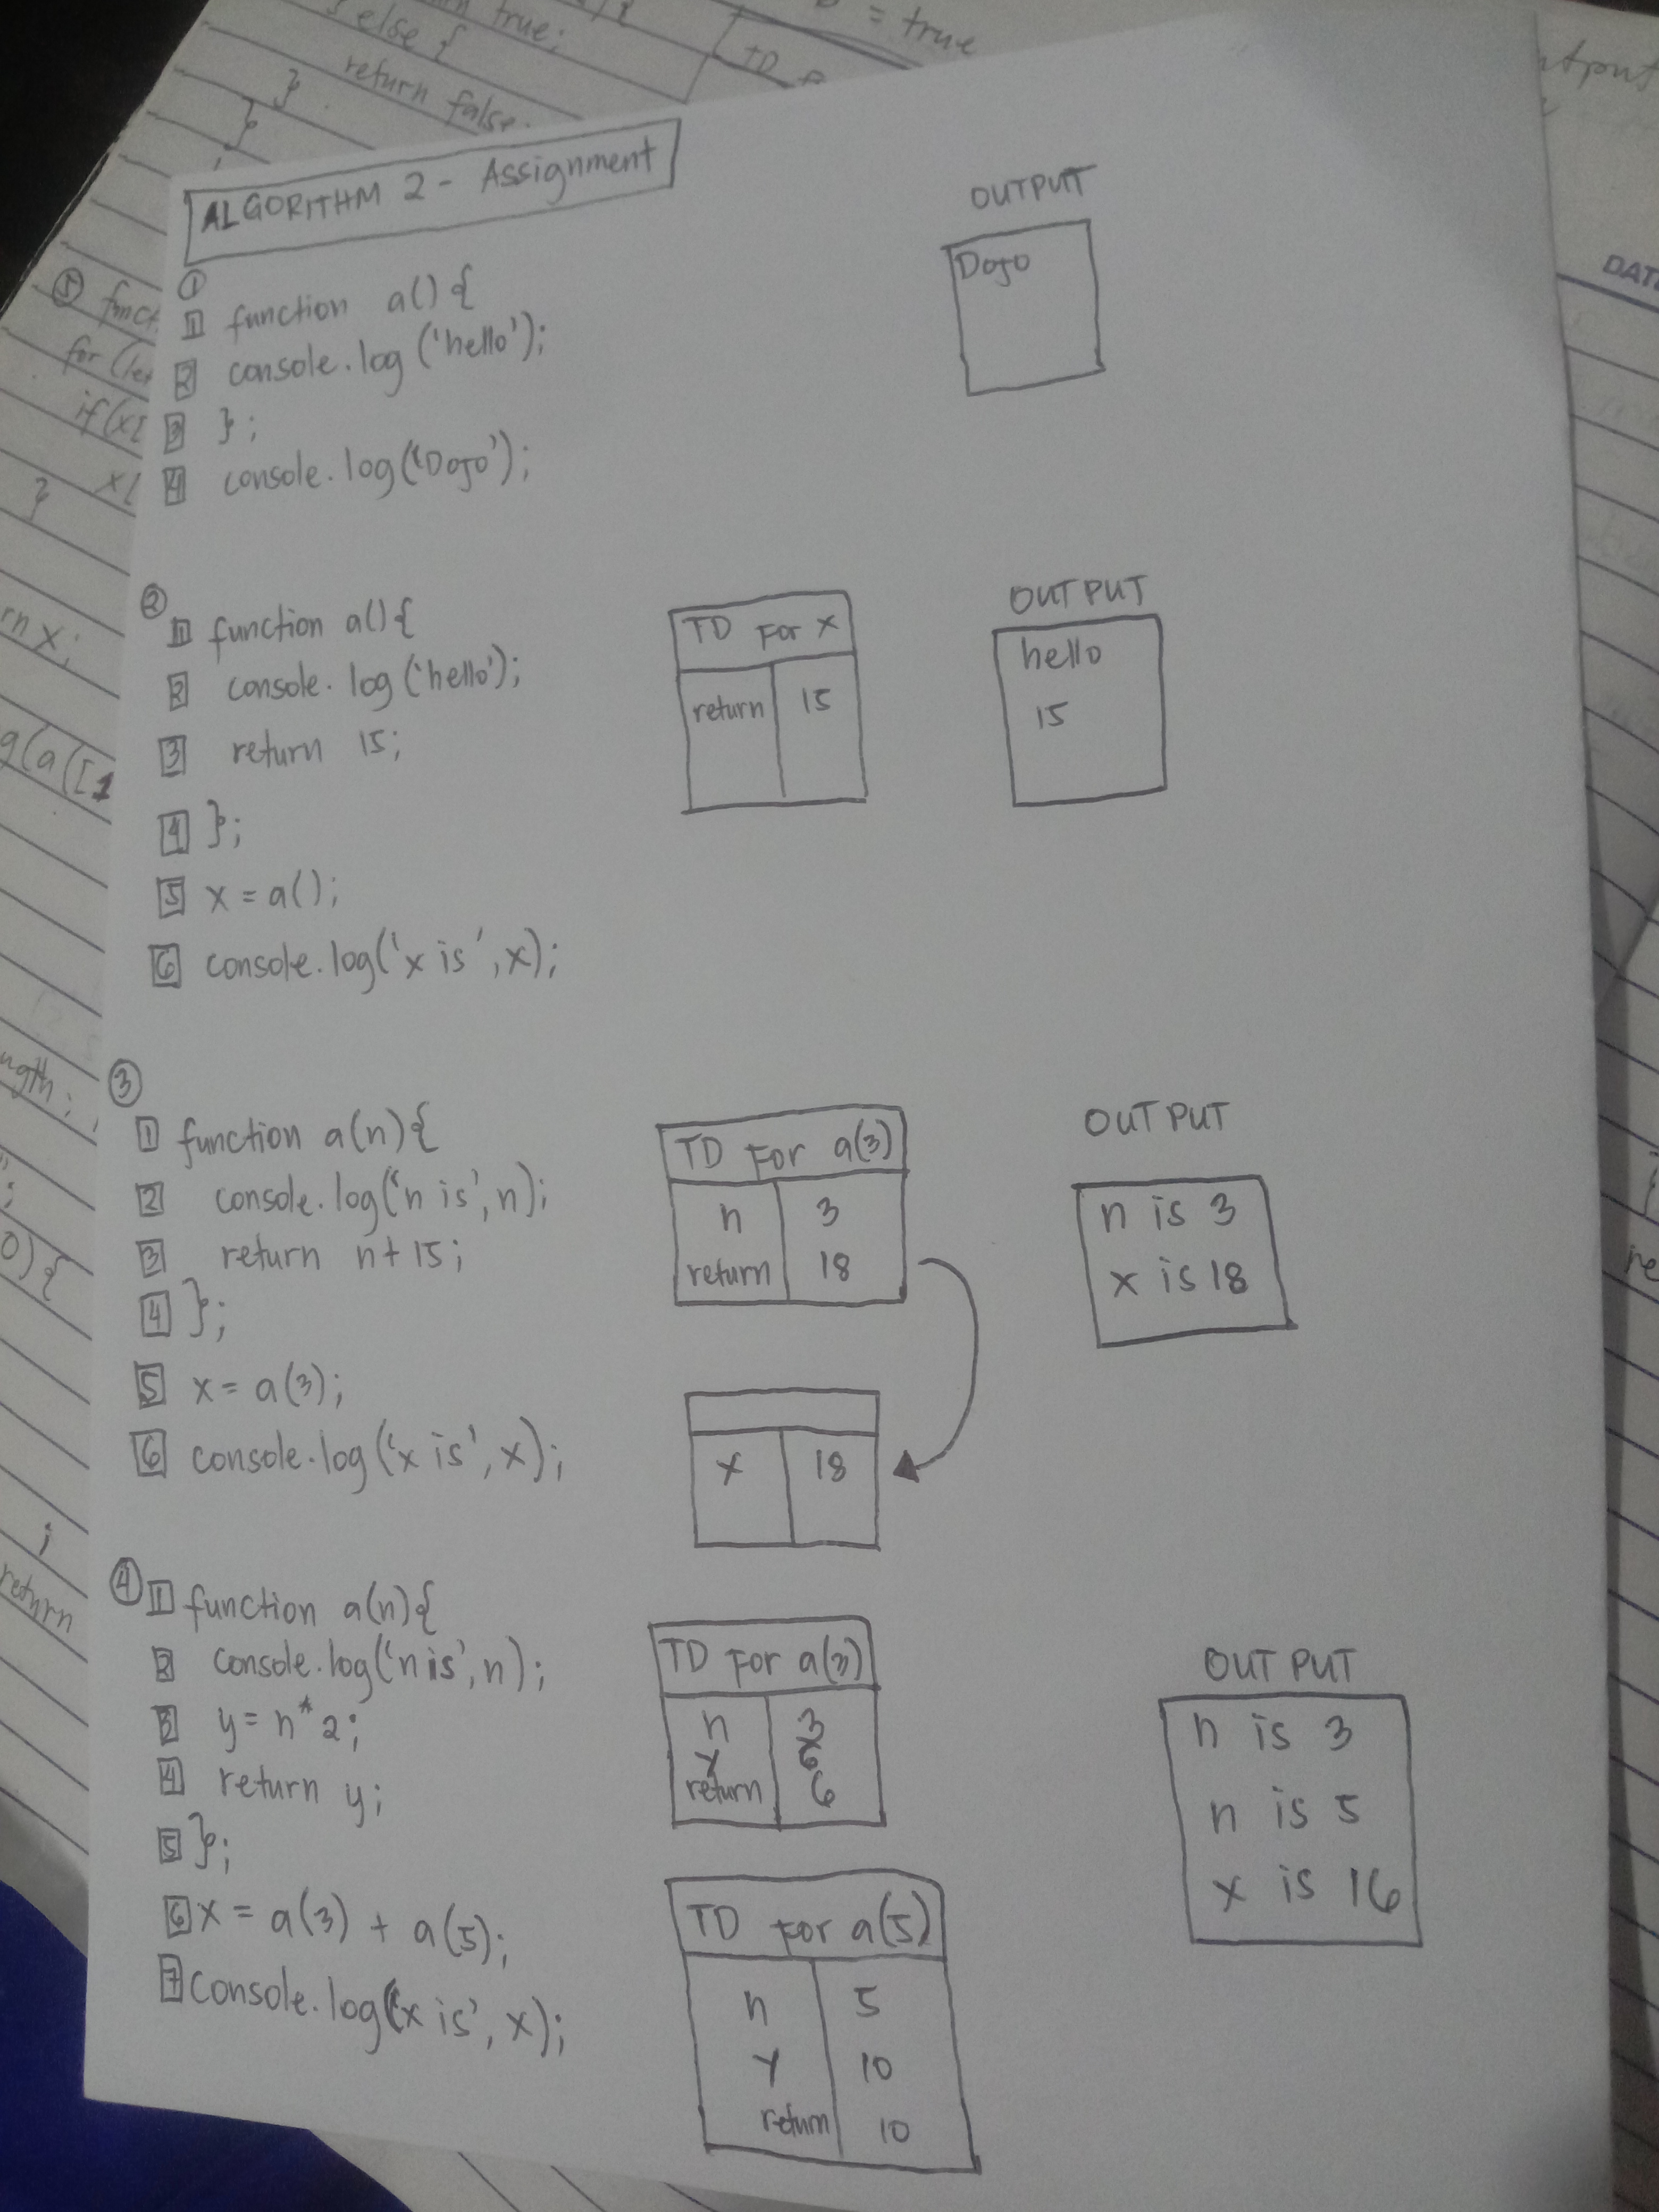 true;
= true
else {
TD
return false.
}
}
ALGORITHM 2 - Assignment
①
1 function a() {
2 console.log ('hello');
3 };
4 console.log('Dojo');
OUTPUT
Dojo
②
1 function a(){
2 console.log ('hello');
3 return 15;
4 };
5 x = a();
6 console.log('x is', x);
TD For x
return 15
OUTPUT
hello
15
③
1 function a(n){
2 console.log('n is', n);
3 return n+15;
4 };
5 x = a(3);
6 console.log('x is', x);
TD For a(3)
n 3
return 18
x 18
OUTPUT
n is 3
x is 18
④
1 function a(n){
2 console.log('n is', n);
3 y = n*2;
4 return y;
5 };
6 x = a(3) + a(5);
7 console.log('x is', x);
TD For a(3)
n 3
y 6
return 6
TD For a(5)
n 5
y 10
return 10
OUTPUT
n is 3
n is 5
x is 16
⑤ funct
for (le
if(x[
x[
}
rn x;
g(a([1
ngth;
0) {
;
return
tput
DAT
}
re